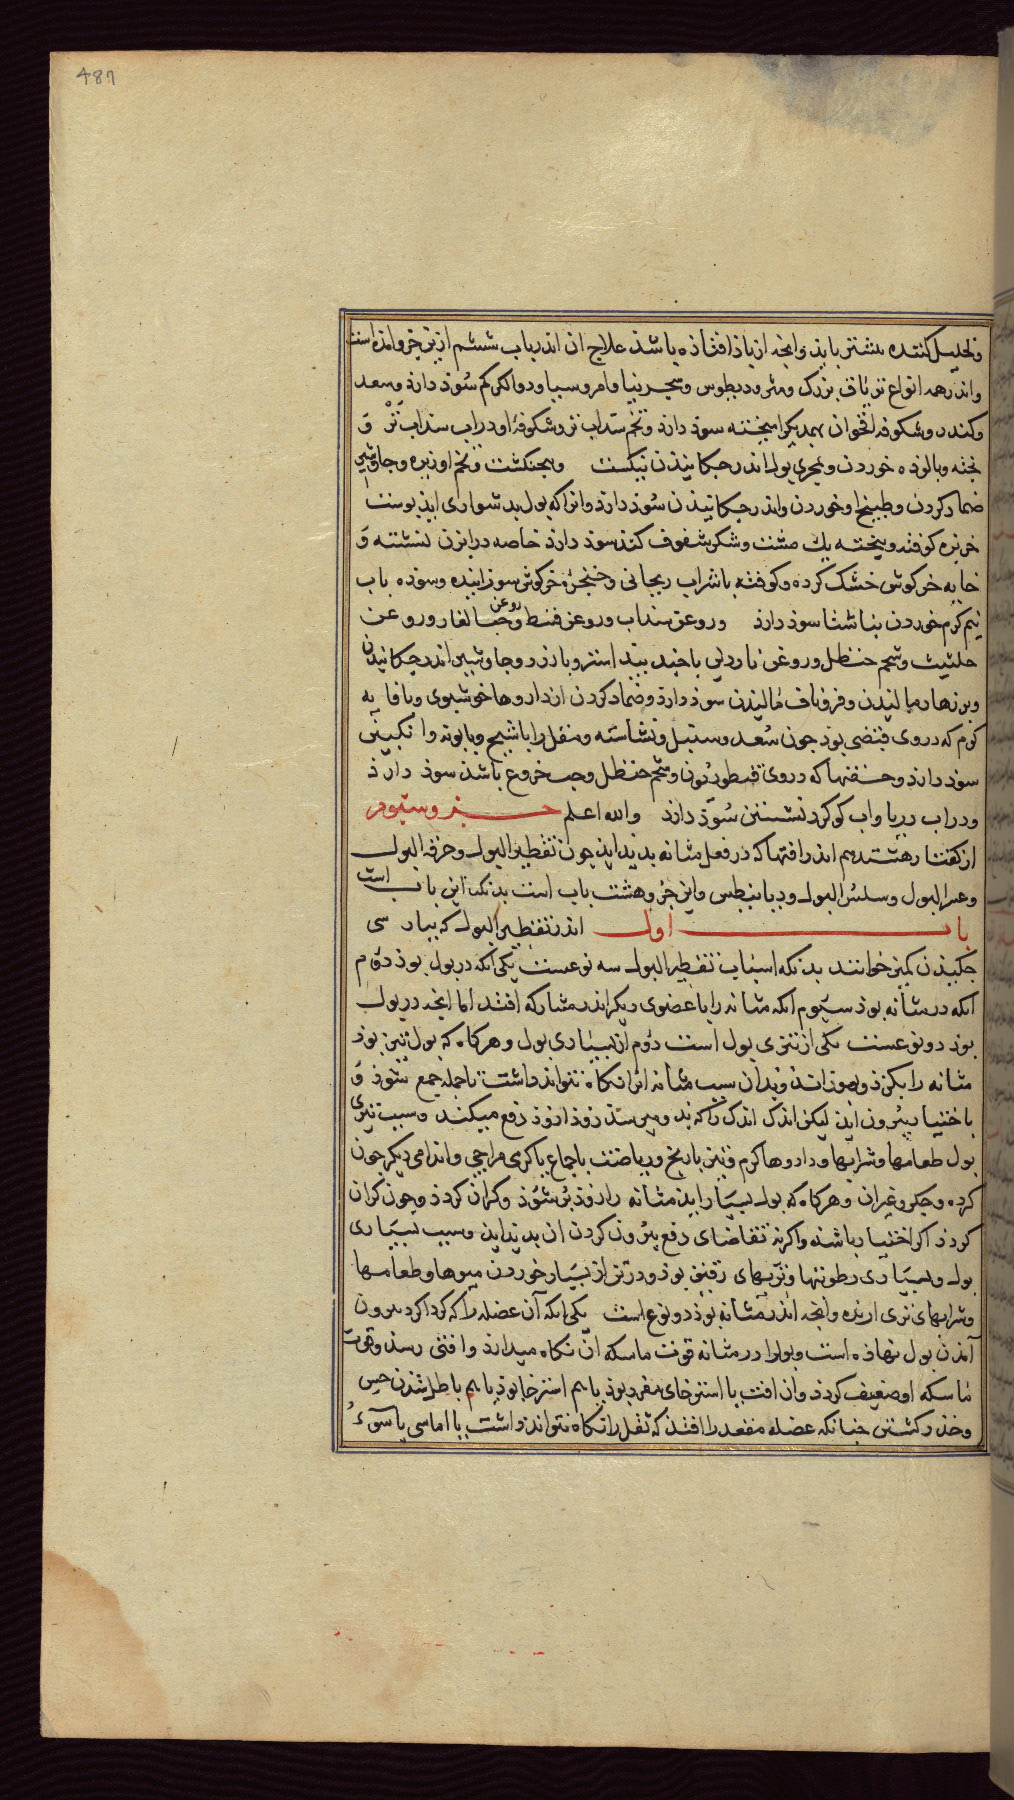 487
و تحلیل کننده بیشتر باید و انچه از باذ افتاذه باشذ علاج ان اندر باب ششم ازین جزو امذه است
و اندر همه انواع تریاق بزرک و مثرودیطوس و سجرینیا و امروسیا و دوا الکرکم سوذ دارذ و سعد
و کندر و شکوفه اقحوان بهمدیکر امیخته سوذ دارذ و تخم سداب تر و شکوفهٔ او در اب سداب تر و
پخته و پالوذه خوردن و بمجری بول اندر چکانیذن نیکست و پنجنکشت و تخم او زیره و جاوشیر
ضماد کردن و طبیخ او خوردن و اندر چکانیذن سوذ دارذ و انرا که بول بدشواری ایذ پوست
خربزه کوفته و بیخته یک مشت و شکر سفوف کنذ سوذ دارذ خاصه در ابزن نشسته و
خایه خرکوش خشک کرده و کوفته با شراب ریحانی و حنجرهٔ خرکوش سوزانیده و سوده باب
نیم کرم خوردن بناشتا سوذ دارذ و روغن سداب و روغن قسط و روغن حب الغار و روغن
حلتیث و شحم حنظل و روغن ناردین با جند بیدستر و بارزد و جاوشیر اندر چکانیدن
و بر زهار مالیدن و فرفیون مالیذن سوذ دارذ و ضماد کردن از داروها خوشبوی و با فایه
کرم که در وی قبضی بوذ چون سعد و سنبل و نشاسته و مقل را با شیح و بابونه و انکبین
سوذ دارذ و حقنها که در وی قنطوریون و شحم حنظل و حب خروع باشذ سوذ دارذ
و در اب دریا و اب کوکرد نشستن سوذ دارذ والله اعلم جزو سیوم
از کفتار هشتدهم اندر افتها که در فعل مثانه بدید ایذ چون تقطیر البول و حرقة البول
و عسر البول و سلس البول و دیابیطس و این جزو هشت باب است بذنک این باب است
باب اول اندر تقطیر البول که بپارسی
چکیذن کمیز خوانند بدنکه اسباب تقطیر البول سه نوعست یکی انکه در بول بوذ دوم
انکه در مثانه بوذ سیوم انکه مثانه را با عضوی دیکر اندر مشارکه افتد اما انچه در بول
بوذ دو نوعست یکی از تیزی بول است دوم از بسیاری بول و هرکاه که بول تیز بوذ
مثانه را بکزذ و بسوزاند و بدان سبب مثانه انرا نکاه نتواند داشت تا جمله جمع شوذ و
باختیار بیرون ایذ لیکن اندک اندک را که بد و میرسذ زوذ ازوذ دفع میکند و سبب تیزی
بول طعامها و شرابها و داروها کرم و تیز یا رنج و ریاضت یا جماع یا کرمی مزاجی و اندامی دیکر چون
کرده و جکر و غیر ان و هرکاه که بول بسیار ایذ مثانه را زوذ پر شوذ و کران کردذ و چون کران
کردذ اکر اختیار باشذ و اکر نه تقاضای دفع بیرون کردن ان بدید ایذ و سبب بسیاری
بول و بسیاری رطوبتها و تریهای رقیق بوذ و در تن از بسیار خوردن میوها و طعامها
و شرابهای تری ارنده و انچه اندر مثانه بوذ دو نوع است یکی انکه آن عضله را که کرداکرد بیرون
آمذن بول نهاذه است و بول را در مثانه قوت ماسکه ان نکاه میدارذ و افتی رسذ و قوت
ماسکه او ضعیف کردذ و ان افت یا استرخای مفرد بوذ یا هم استرخا بوذ یا هم باطل شدن حس
و خذر کشتن چنانکه عضله مقعد را افتذ که ثفل را نکاه نتواند داشت یا اماسی یا سوء